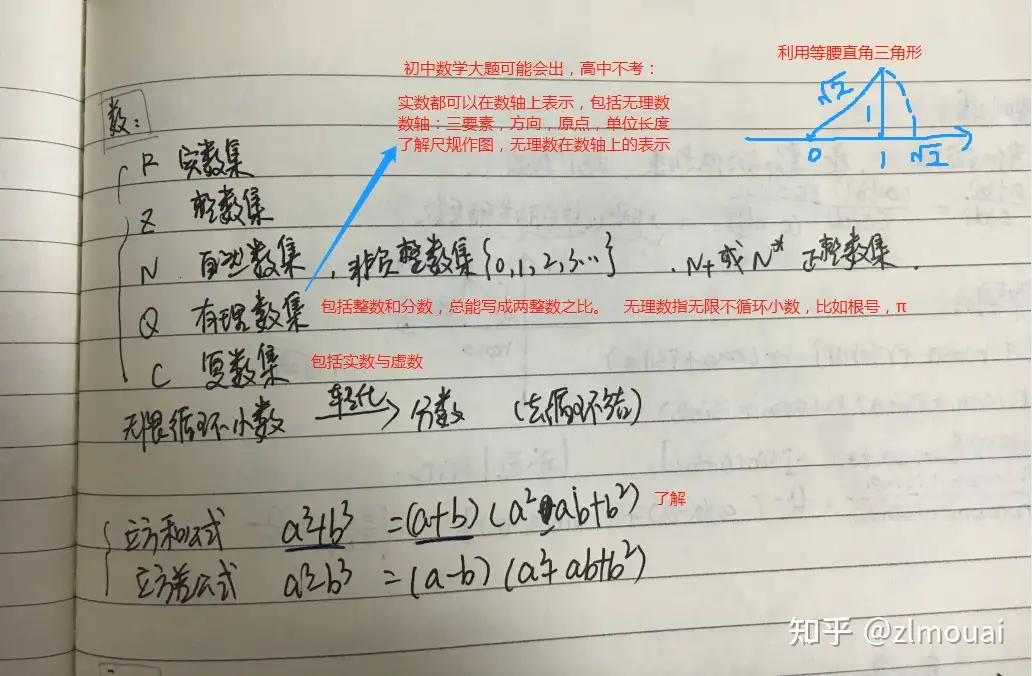 初中数学大题可能会出，高中不考：
利用等腰直角三角形
实数都可以在数轴上表示，包括无理数
数轴：三要素，方向，原点，单位长度
了解尺规作图，无理数在数轴上的表示
√2
1
0 1 √2
数：
R 实数集
Z 整数集
N 自然数集，非负整数集{0,1,2,3...}，N+或N* 正整数集．
Q 有理数集 包括整数和分数，总能写成两整数之比。 无理数指无限不循环小数，比如根号，π
C 复数集 包括实数与虚数
无限循环小数 转化 分数 (去循环节)
立方和公式 a³+b³ =(a+b)(a²-ab+b²) 了解
立方差公式 a³-b³ =(a-b)(a²+ab+b²)
知乎 @zlmouai